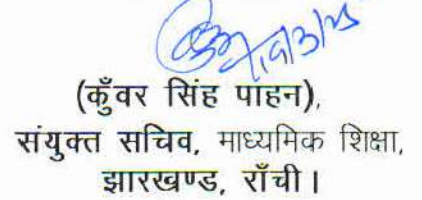 (कुँवर सिंह पाहन),
संयुक्त सचिव, माध्यमिक शिक्षा,
झारखण्ड, राँची।